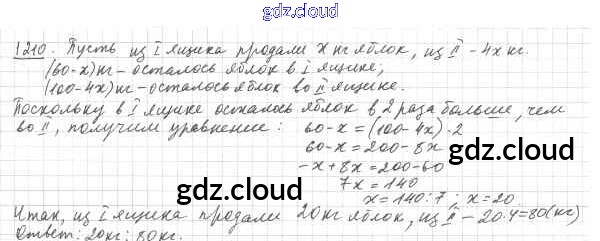 gdz.cloud
1210. Пусть из I ящика продали x кг яблок, из II – 4x кг.
(60-x)кг – осталось яблок в I ящике;
(100-4x)кг – осталось яблок во II ящике.
Поскольку в I ящике осталось яблок в 2 раза больше, чем
во II, получим уравнение: 60-x=(100-4x)·2
60-x=200-8x
gdz.cloud
-x+8x=200-60
7x=140
gdz.cloud
x=140:7; x=20.
Итак, из I ящика продали 20кг яблок, из II – 20·4=80(кг)
Ответ: 20кг; 80кг.
gdz.cloud